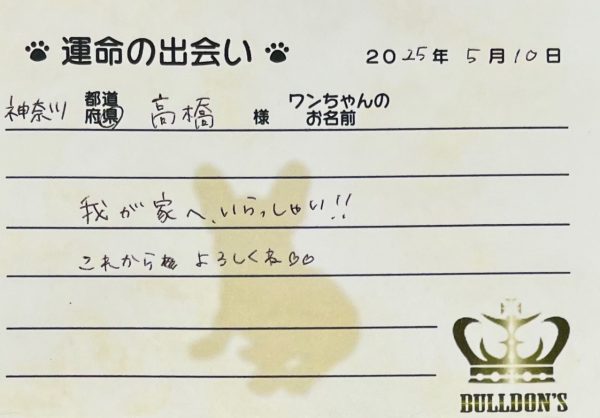 運命の出会い 2025年 5月10日
神奈川 都道府県 高橋 様 ワンちゃんのお名前
我が家へ、いらっしゃい!!
これから よろしくね♡♡
BULLDON'S